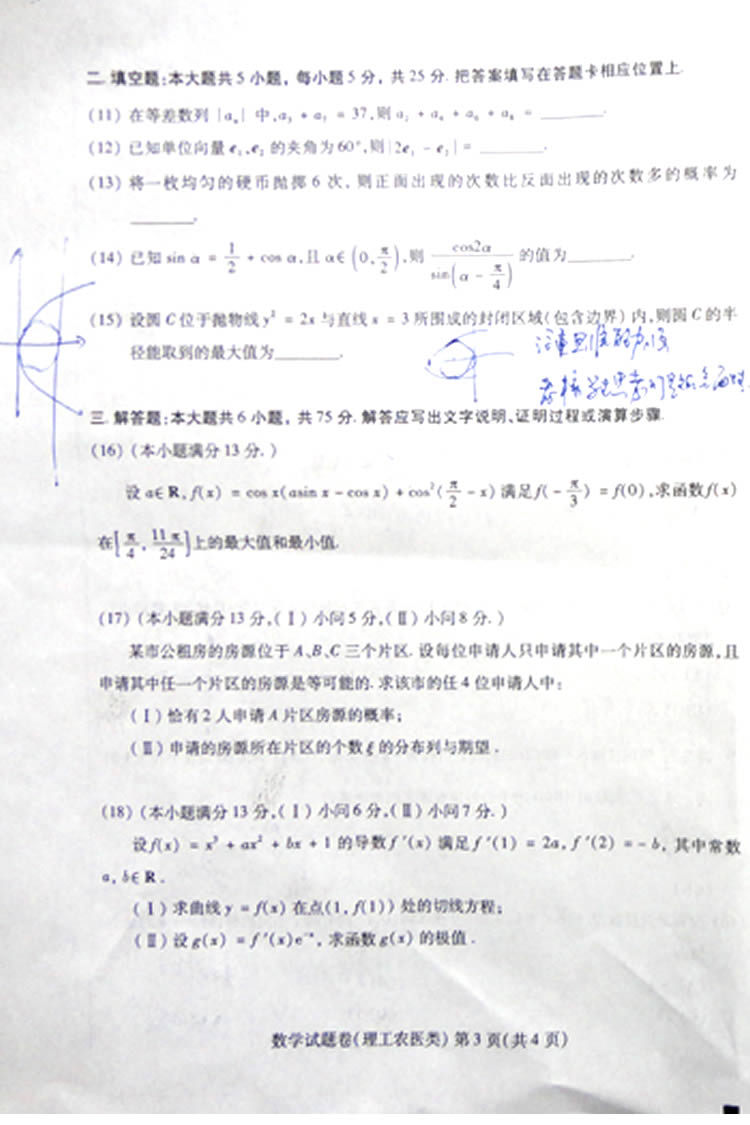 二. 填空题:本大题共 5 小题, 每小题 5 分, 共 25 分. 把答案填写在答题卡相应位置上.
(11) 在等差数列 {aₙ} 中, a₃ + a₇ = 37, 则 a₂ + a₄ + a₆ + a₈ = ______.
(12) 已知单位向量 e₁, e₂ 的夹角为 60°, 则 |2e₁ - e₂| = ______.
(13) 将一枚均匀的硬币抛掷 6 次, 则正面出现的次数比反面出现的次数多的概率为
______.
(14) 已知 sin α = 1/2 + cos α, 且 α∈(0, π/2), 则 cos2α/sin(α - π/4) 的值为______.
(15) 设圆 C 位于抛物线 y² = 2x 与直线 x = 3 所围成的封闭区域(包含边界) 内, 则圆 C 的半
径能取到的最大值为______.
三. 解答题:本大题共 6 小题, 共 75 分. 解答应写出文字说明、证明过程或演算步骤.
(16) (本小题满分 13 分. )
设 a∈R, f(x) = cos x(asin x - cos x) + cos²(π/2 - x) 满足 f(-π/3) = f(0), 求函数 f(x)
在[π/4, 11π/24]上的最大值和最小值.
(17) (本小题满分 13 分,(Ⅰ) 小问 5 分,(Ⅱ) 小问 8 分. )
某市公租房的房源位于 A、B、C 三个片区. 设每位申请人只申请其中一个片区的房源, 且
申请其中任一个片区的房源是等可能的. 求该市的任 4 位申请人中:
(Ⅰ) 恰有 2 人申请 A 片区房源的概率;
(Ⅱ) 申请的房源所在片区的个数 ξ 的分布列与期望.
(18) (本小题满分 13 分,(Ⅰ) 小问 6 分,(Ⅱ) 小问 7 分. )
设 f(x) = x³ + ax² + bx + 1 的导数 f′(x) 满足 f′(1) = 2a, f′(2) = -b, 其中常数
a, b∈R.
(Ⅰ) 求曲线 y = f(x) 在点(1, f(1)) 处的切线方程;
(Ⅱ) 设 g(x) = f′(x)e⁻ˣ, 求函数 g(x) 的极值.
数学试题卷(理工农医类) 第 3 页(共 4 页)